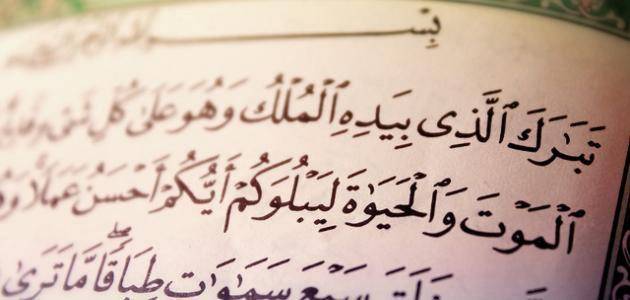 بِسْ
تَبَـٰرَكَ ٱلَّذِى بِيَدِهِ ٱلْمُلْكُ وَهُوَ عَلَىٰ كُلِّ شَىْءٍ
ٱلْمَوْتَ وَٱلْحَيَوٰةَ لِيَبْلُوَكُمْ أَيُّكُمْ أَحْسَنُ عَمَلًا
سَبْعَ سَمَـٰوَٰتٍ طِبَاقًا مَّا تَرَىٰ